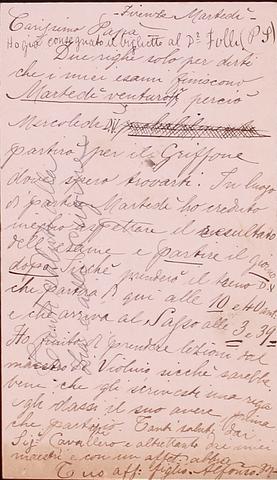 Firenze Martedì -
Carissimo Papà
Ho già consegnato il biglietto al Dr Folli (P.S)
Due righe solo per dirti
che i miei esami finiscono
Martedì venturo perciò
Mercoledì D.V.
partirò per il Griffone
dove spero trovarti. In luogo
di partire Martedì ho creduto
meglio aspettare il resultato
dell'esame e partire il
dopo. Sicchè prenderò il treno D.V
che partirà di qui alle 10 e 40 ant.
e che arriva al Sasso alle 3, 3
Ho finito di prendere lezioni dal
maestro di Violino sicchè sarebbe
bene che gli scrivesti una riga
e gli dassi il suo avere prima
che parto. Tanti saluti dai
Sigi Cavallero e altrettanto dai miei
maestri e con un affet. abbrio
Tuo aff. figlio Alfonso